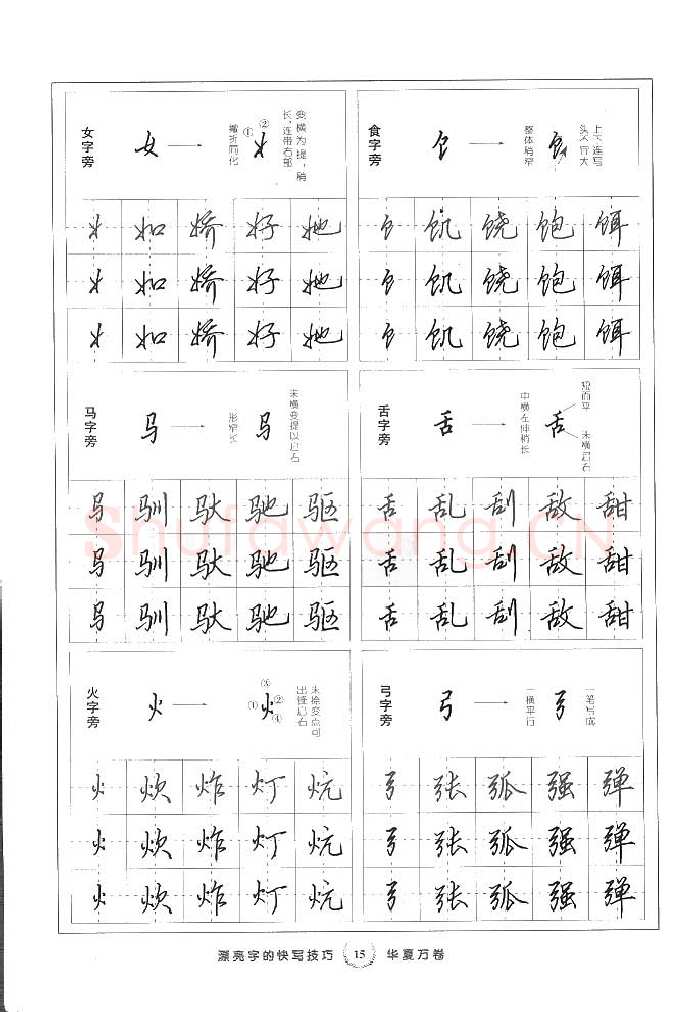 女字旁
女
①
②
撇折简化
变横为提，稍
长，连带右部
女 如 娇 好 她
女 如 娇 好 她
女 如 娇 好 她
食字旁
饣
整体稍窄
上下连写
饣 饥 饶 饱 饵
饣 饥 饶 饱 饵
饣 饥 饶 饱 饵
马字旁
马
形窄长
马
末横变提以启右
马 驯 驮 驰 驱
马 驯 驮 驰 驱
马 驯 驮 驰 驱
舌字旁
舌
中横左伸稍长
舌
短而平
末横启右
舌 乱 刮 敌 甜
舌 乱 刮 敌 甜
舌 乱 刮 敌 甜
火字旁
火
① ② ③ ④
火
末捺变点可
出锋启右
火 炊 炸 灯 炕
火 炊 炸 灯 炕
火 炊 炸 灯 炕
弓字旁
弓
二横平行
弓
一笔写成
弓 张 弧 强 弹
弓 张 弧 强 弹
弓 张 弧 强 弹
Shufawang.CN
漂亮字的快写技巧 15 华夏万卷